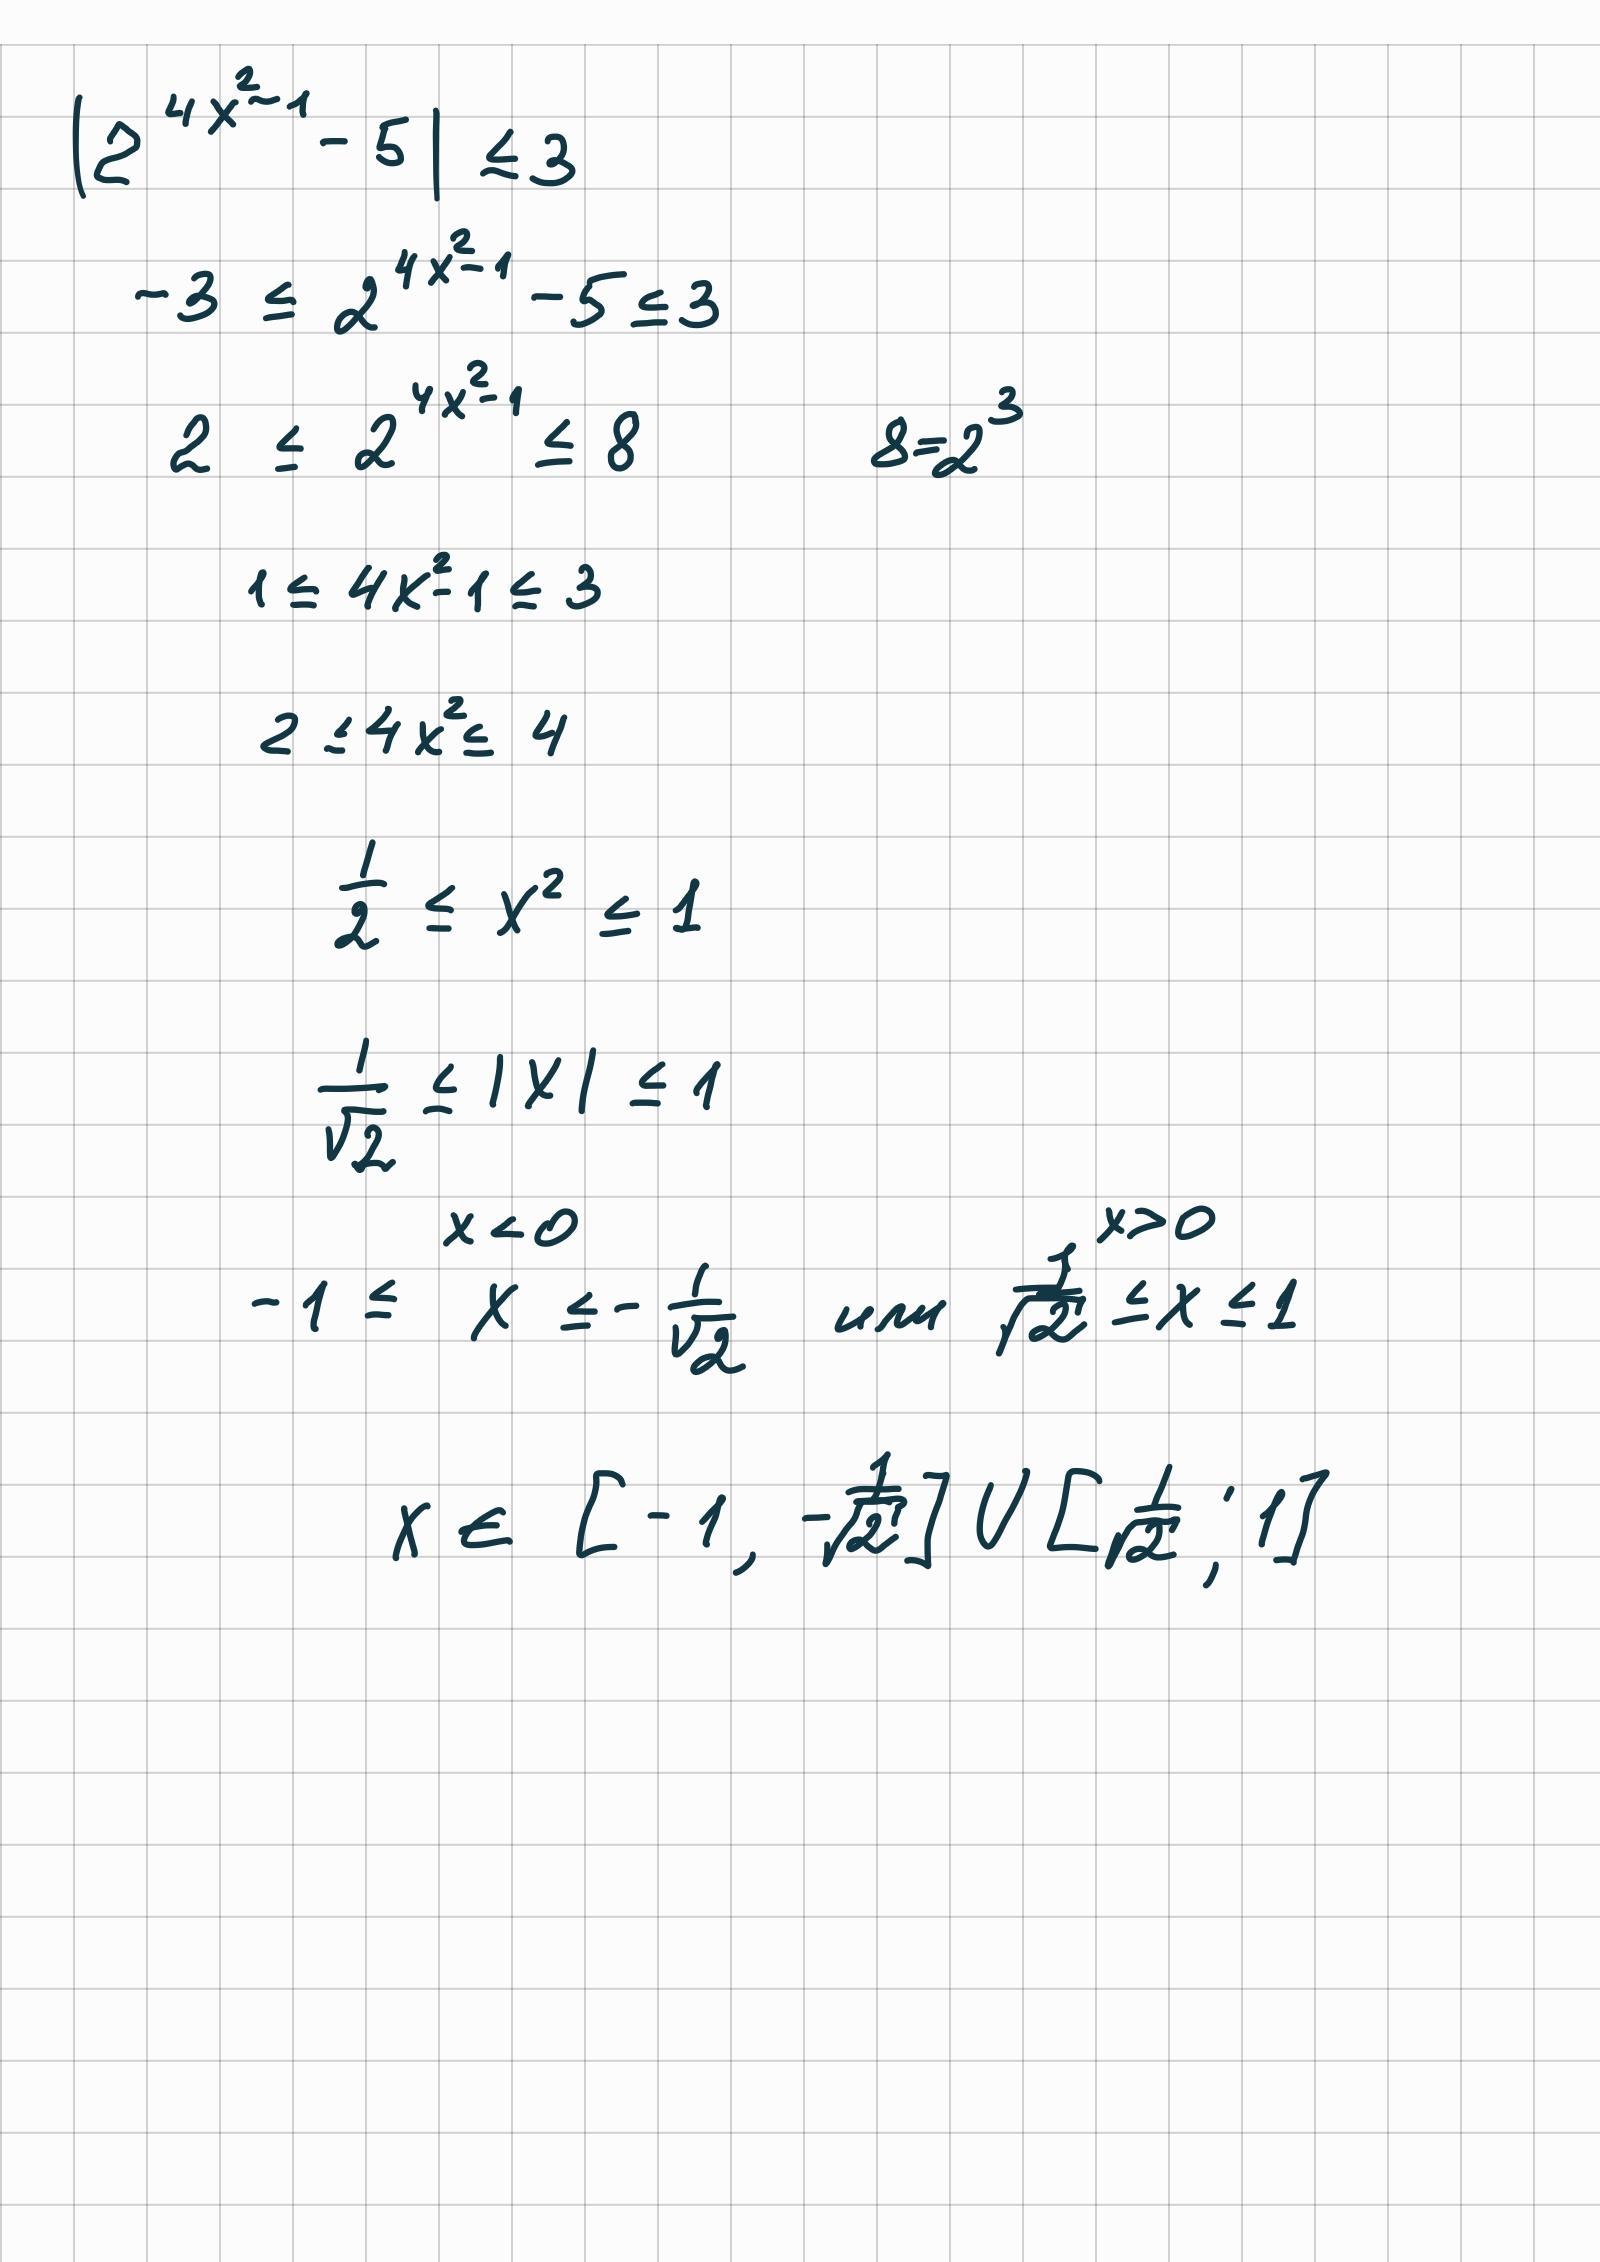 |2^{4x²-1} - 5| ≤ 3
-3 ≤ 2^{4x²-1} - 5 ≤ 3
2 ≤ 2^{4x²-1} ≤ 8 8=2³
1 ≤ 4x²-1 ≤ 3
2 ≤ 4x² ≤ 4
1/2 ≤ x² ≤ 1
1/√2 ≤ |x| ≤ 1
x < 0 x > 0
-1 ≤ x ≤ -1/√2 или 1/√2 ≤ x ≤ 1
x ∈ [-1, -1/√2] ∪ [1/√2; 1]